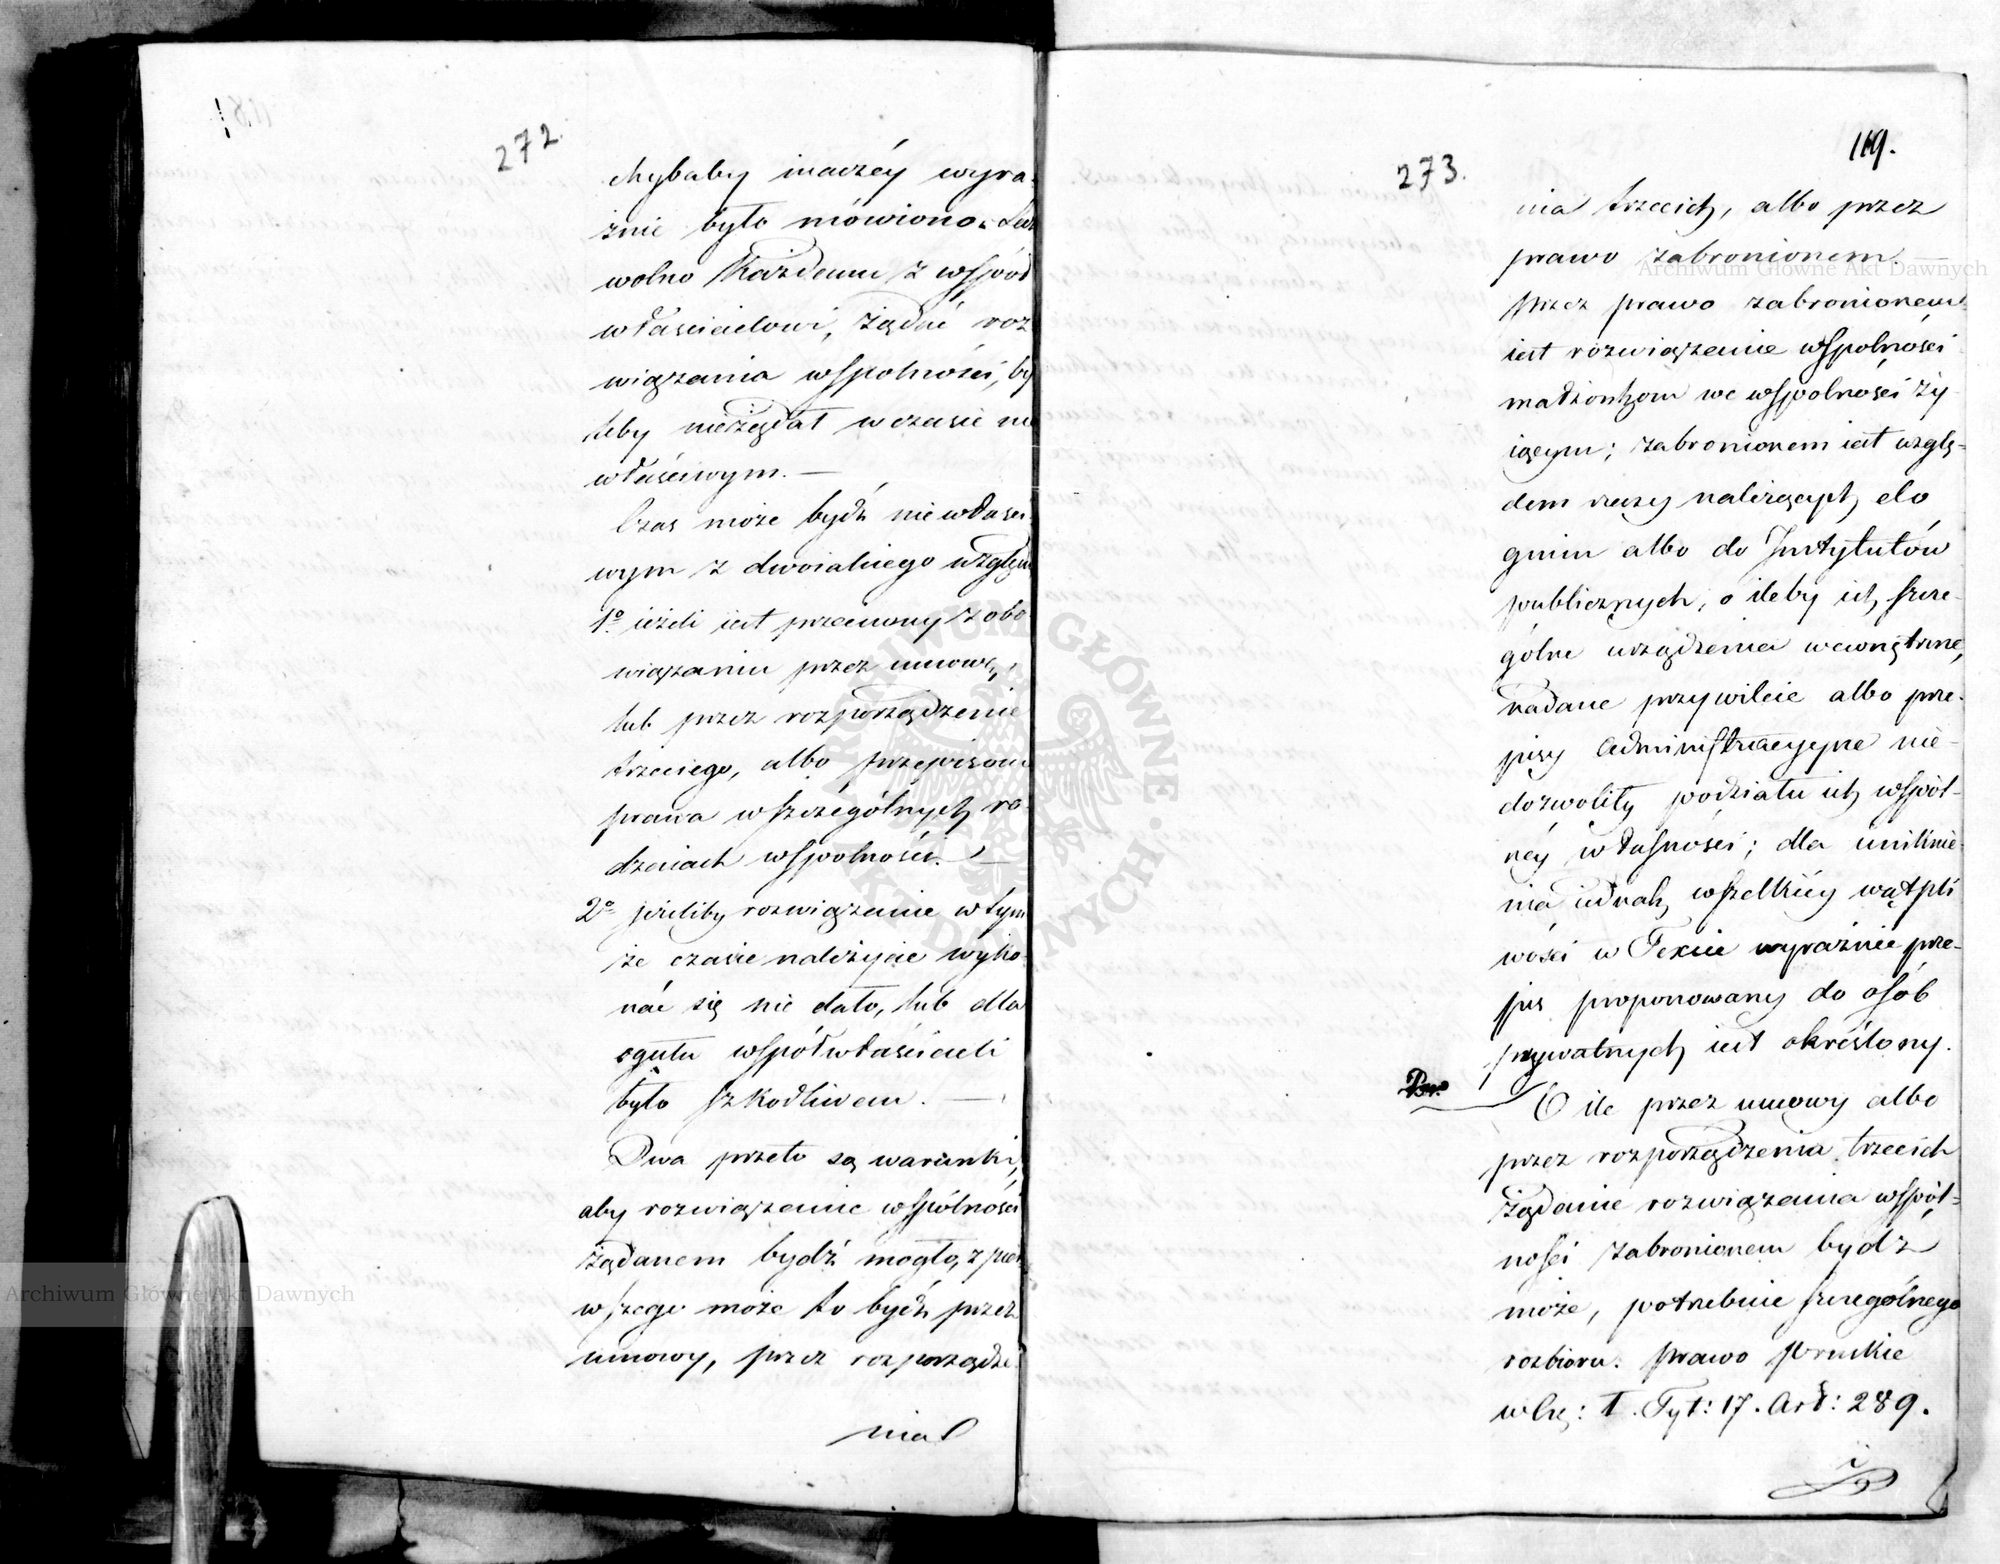 272.
chybaby inaczéy wyra-
źnie było mówiono.
wolno Każdemu z współ
właścicielowi, żądać roz
wiązania wspolności, by
leby nieżądał w czasie nie
właściwym. —
Czas może bydź niewłaści
wym z dwoiakiego względu
1o ieżeli iest przeciwny zobo
wiązaniu przez umowę,
lub przez rozporządzenie
trzeciego, albo przepisom
prawa w szczególnych ro
dzaiach wspolności. —
2o jeżeliby rozwiązanie w tym
że czasie należycie wyko
nać się nie dało, lub dla
ogułu współwłaścicieli
było szkodliwem. —
Dwa przeto są warunki,
aby rozwiązanie wspólności
żądanem bydź mogło, z pier
wszego może to bydź przez
umowy, przez rozporządze-
nia
119.
273.
nia trzecich, albo przez
prawo zabronionem. —
Przez prawo zabronionem
iest rozwiązanie wspolności
małżonkom we wspolności ży
iącym; zabronionem iest wzglę-
dem rzeczy należących do
gmin albo do Instytutów
publicznych, o ileby ich szcze-
gólne urządzenia wewnętrzne,
nadane przywileie albo prze-
pisy administracyyne nie-
dozwoliły podziału ich współ-
néy własności; dla uniknie-
nia iednak wszelkiéy wątpli
wości w Texcie wyraźnie prze-
pis proponowany do osób
prywatnych iest określony.
O ile przez umowy albo
przez rozporządzenia trzecich
żądanie rozwiązania współ-
ności zabronionem bydź
może, potrzebuie szczególnego
rozbioru. Prawo Pruskie
w Czę: I. Tyt: 17. Art: 289.
Archiwum Główne Akt Dawnych
Archiwum Główne Akt Dawnych
ARCHIWUM GŁÓWNE AKT DAWNYCH